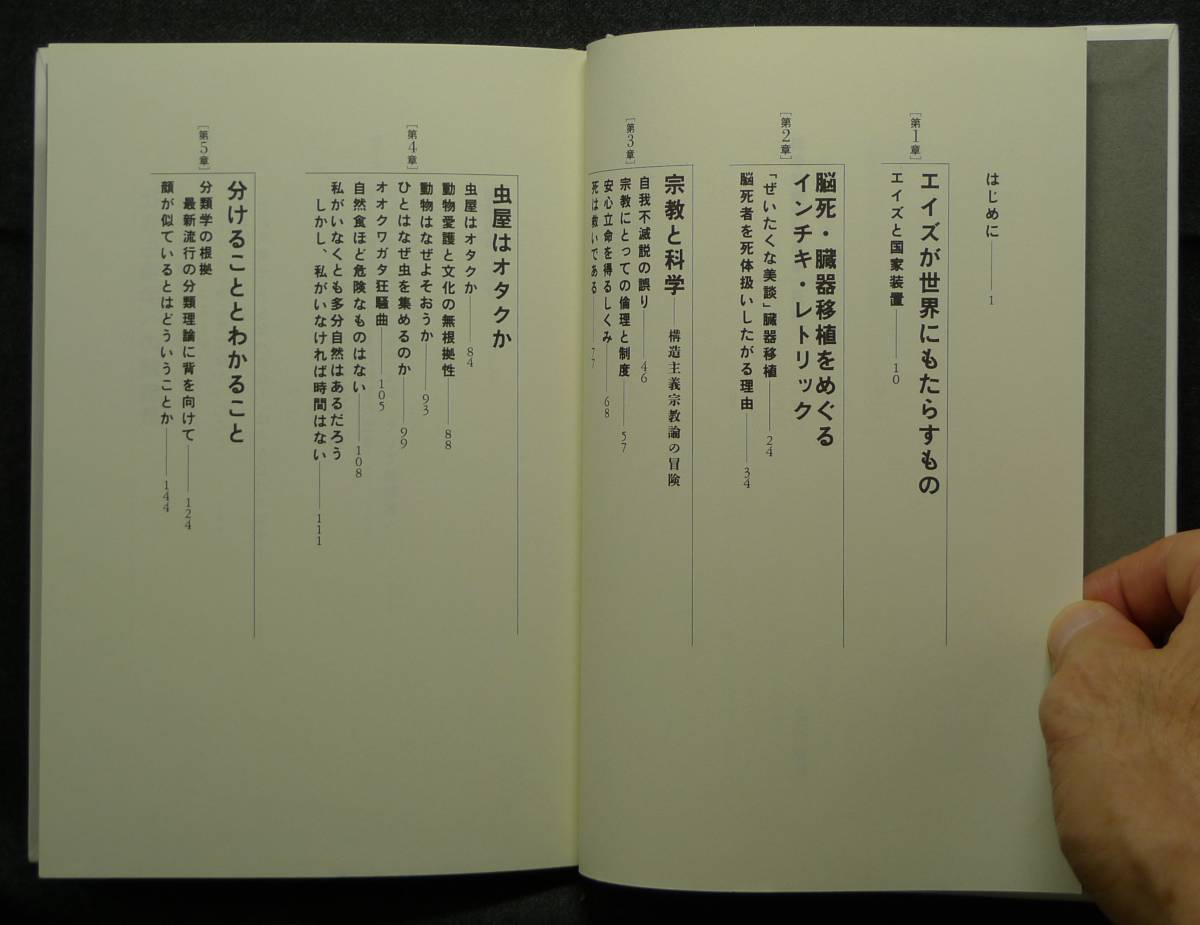 はじめに——1
［第1章］
エイズが世界にもたらすもの
エイズと国家装置——10
［第2章］
脳死・臓器移植をめぐる
インチキ・レトリック
「ぜいたくな美談」臓器移植——24
脳死者を死体扱いしたがる理由——34
［第3章］
宗教と科学——構造主義宗教論の冒険
自我不滅説の誤り——46
宗教にとっての倫理と制度——57
安心立命を得るしくみ——68
死は救いである——77
［第4章］
虫屋はオタクか
虫屋はオタクか——84
動物愛護と文化の無根拠性——88
動物はなぜよそおうか——93
ひとはなぜ虫を集めるのか——99
オオクワガタ狂騒曲——105
自然食ほど危険なものはない——108
私がいなくとも多分自然はあるだろう
しかし、私がいなければ時間はない——111
［第5章］
分けることとわかること
分類学の根拠
最新流行の分類理論に背を向けて——124
顔が似ているとはどういうことか——144